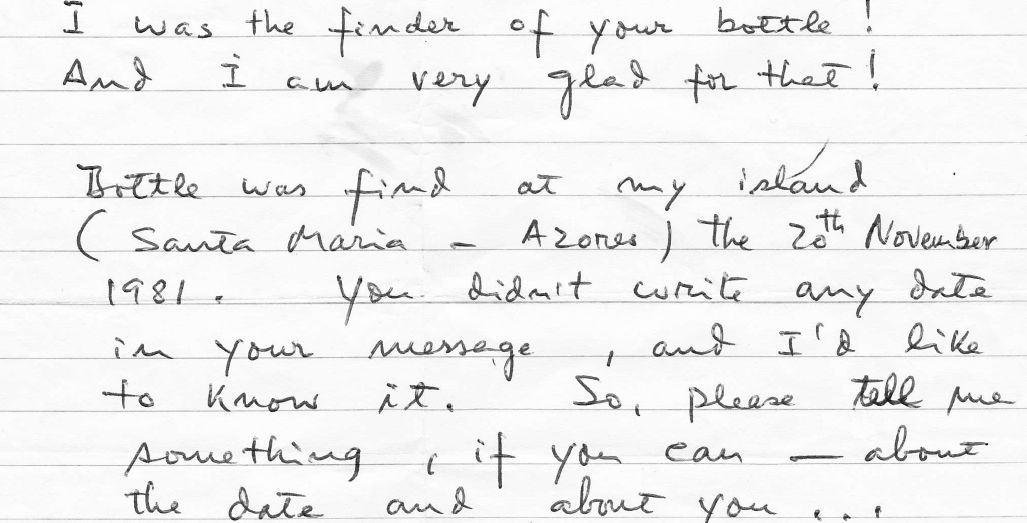 I was the finder of your bottle!
And I am very glad for that!
Bottle was find at my island
(Santa Maria - Azores) the 20th November
1981. You didn't write any date
in your message, and I'd like
to know it. So, please tell me
something, if you can — about
the date and about you...